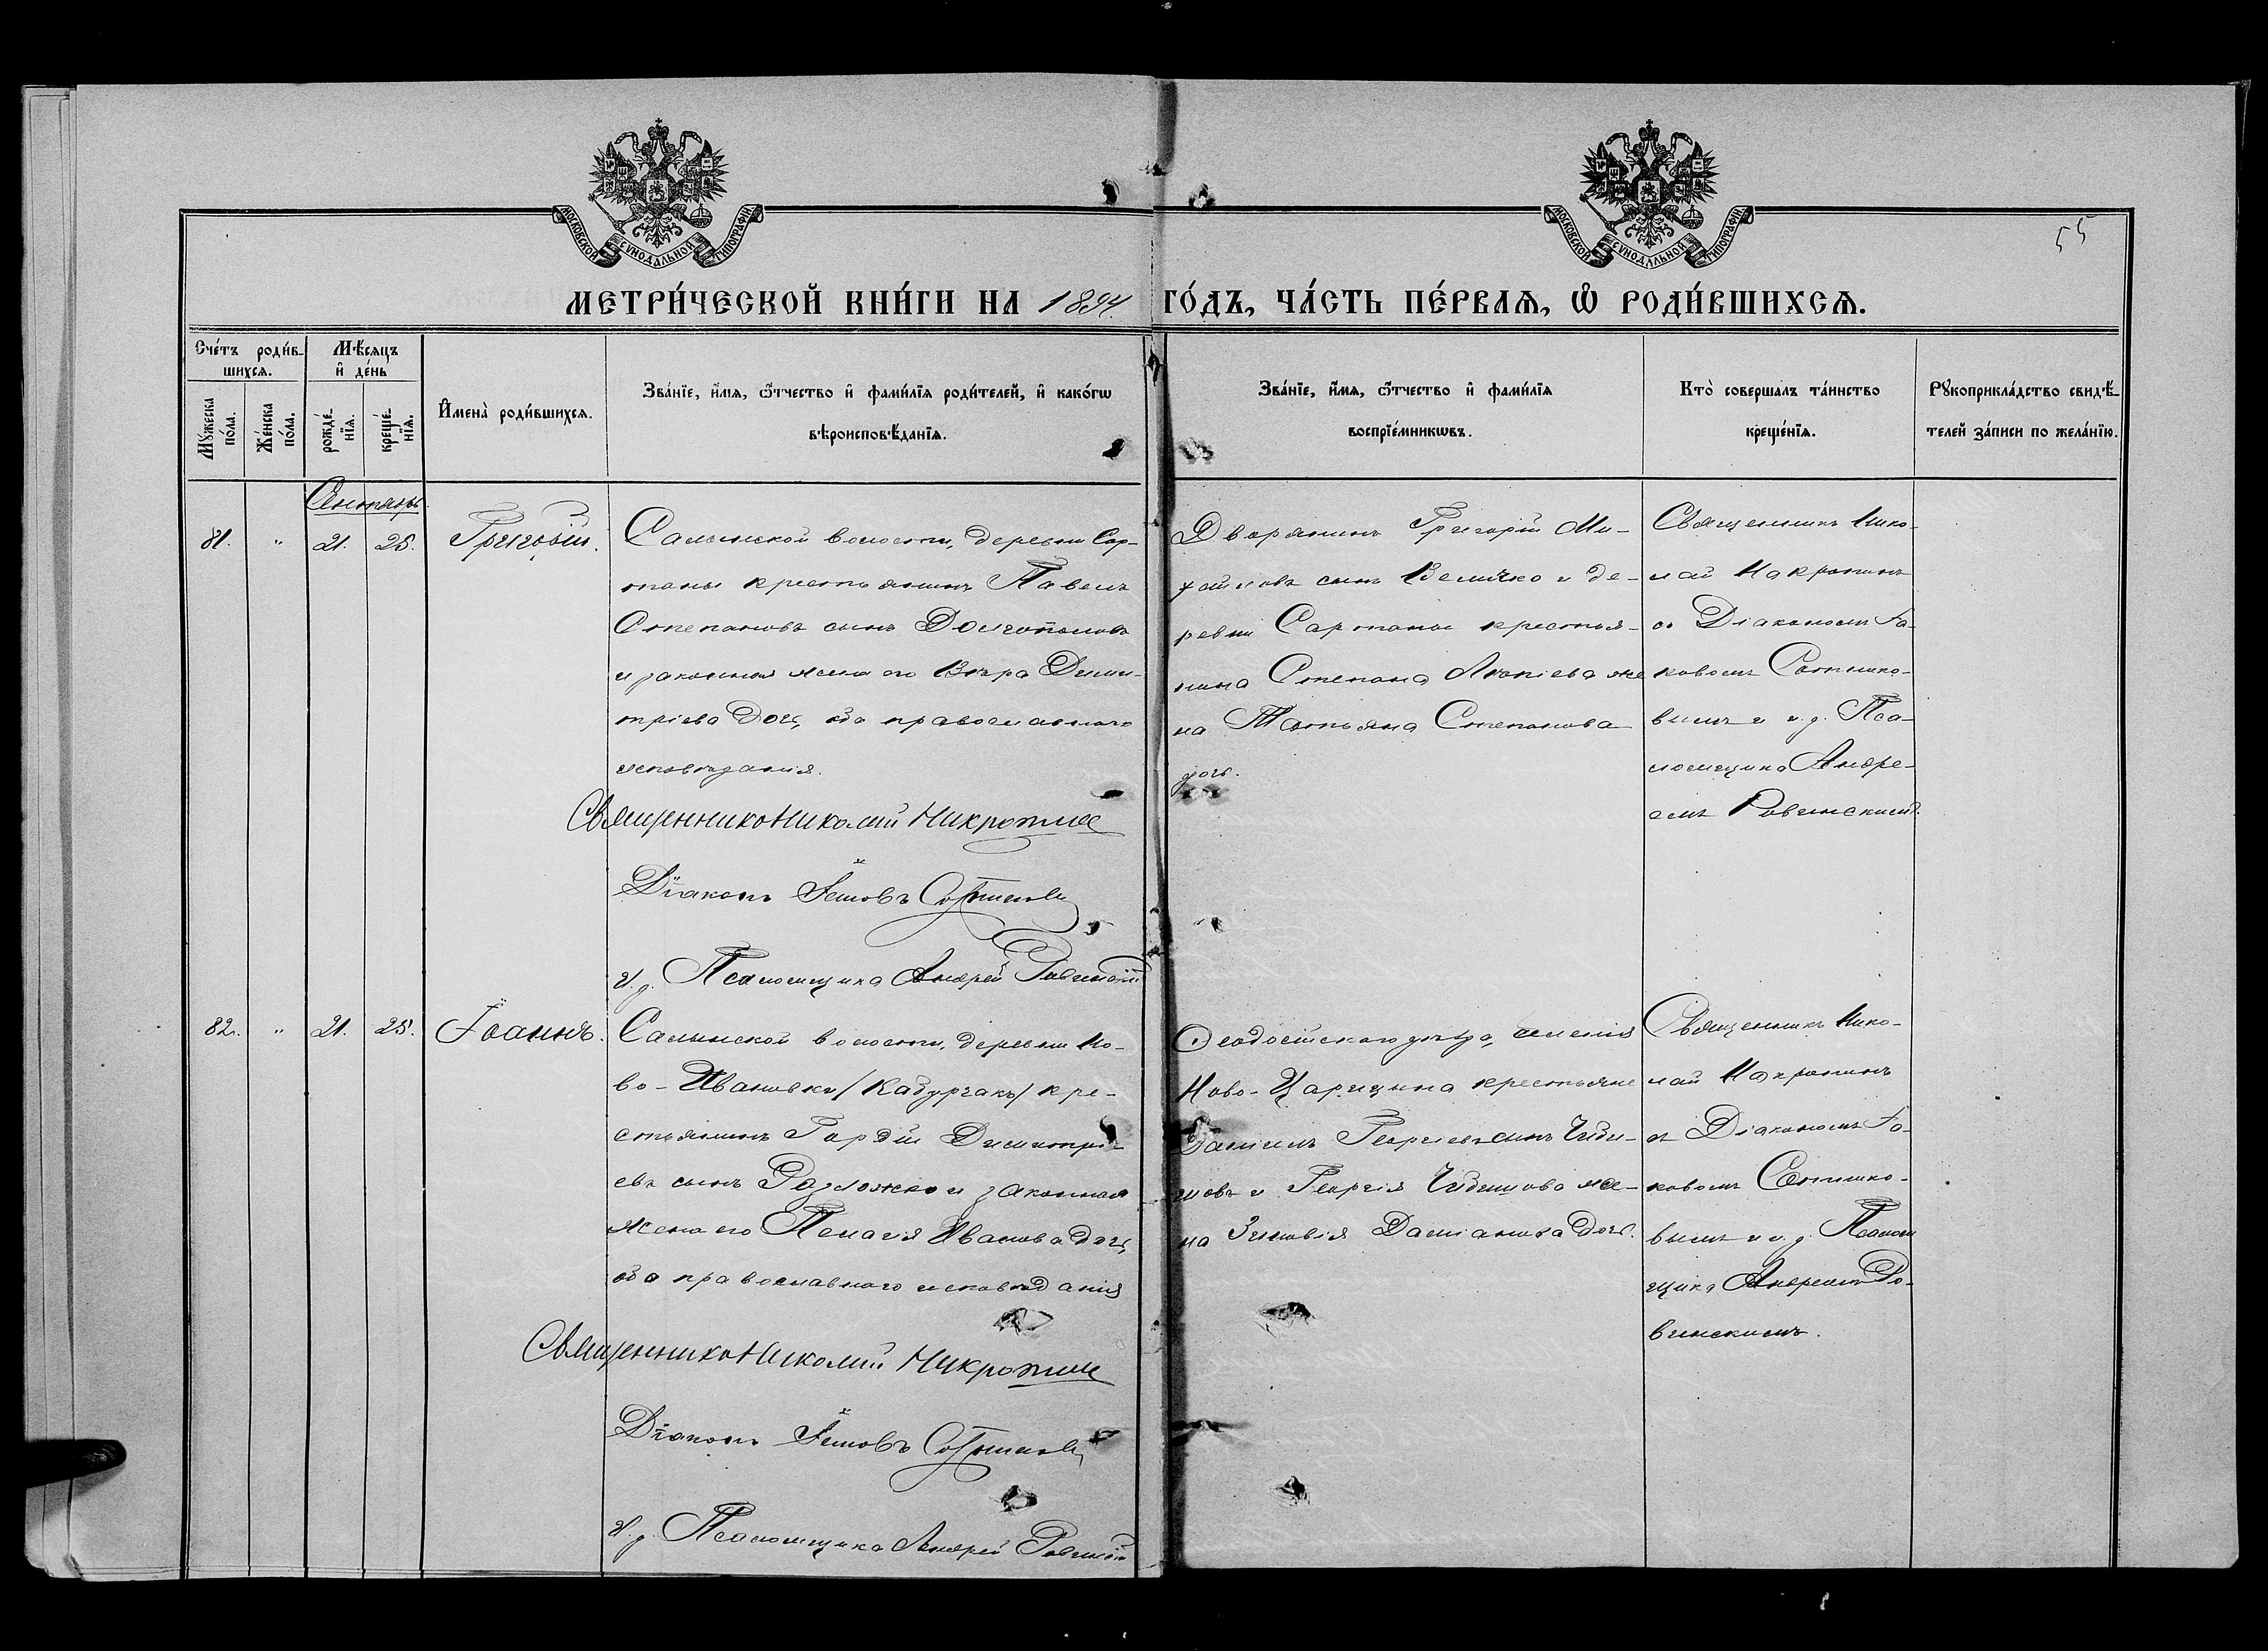 МОСКОВСКОЙ СѴНОДАЛЬНОЙ ТИПОГРАФІИ
МОСКОВСКОЙ СѴНОДАЛЬНОЙ ТИПОГРАФІИ
55
МЕТРИ́ЧЕСКОЙ КНИ́ГИ НА 1894 ГО́ДЪ, ЧА́СТЬ ПЕ́РВАѦ, Ѡ РОДИ́ВШИХСѦ.
Сче́тъ роди́в-
шихсѧ.
Мѣ́сѧцъ
и де́нь
Мꙋжеска по́ла.
Же́нска по́ла.
рожде́-
нїѧ.
креще́-
нїѧ.
Имена̀ роди́вшихсѧ.
Зва́нїе, и́мѧ, ѻ́тчество и фами́лїѧ роди́телей, и како́гѡ
вѣроисповѣ́данїѧ.
Зва́нїе, и́мѧ, ѻ́тчество и фами́лїѧ
воспрїе́мникѡвъ.
Кто̀ соверша́лъ та́инство
креще́нїѧ.
Рꙋкоприкла́дство свидѣ́-
телей за́писи по жела́нїю.
Сентябрь
81. " 21. 25. Григорій.
Салынской волости, деревни Сар-
таны крестьянинъ Павелъ
Степановъ сынъ Долгополовъ
и законная жена его Вѣра Дими-
тріева дочь, оба православнаго
исповѣданія.
Священникъ Николай Макротин
Діаконъ Іаковъ
И. д. Псаломщика Андрей Ровинскій
Дворянинъ Григорій Ми-
хайловъ сынъ Величко и де-
ревни Сартаны крестья-
нина Степана жe
на Татьяна Степанова
дочь.
Священникъ Нико-
лай
съ Діакономъ Іа-
ковомъ Сотнико-
вымъ и и. д. Пса-
ломщика Андре-
емъ Ровинскимъ.
82. " 21. 25. Іоаннъ.
Салынской волости, деревни Но-
во-Ивановки /Кадургакъ/ кре-
стьянинъ Гордій Димитрі-
евъ сынъ Разложко и законная
жена его Пелагія Иванова дочь,
оба православнаго исповѣданія
Священникъ Николай
Діаконъ Іаковъ
И. д. Псаломщика Андрей Ровинскій
Ѳеодосійскаго уѣзда, селенія
Ново-Царицына крестьяне
Даніилъ Георгіевъ сынъ
и Георгія же-
на Зиновія Даміанова дочь.
Священникъ Нико-
лай
съ Діакономъ Іа-
ковомъ Сотнико-
вымъ и и. д. Псалом
щика Андреемъ Ро-
винскимъ.